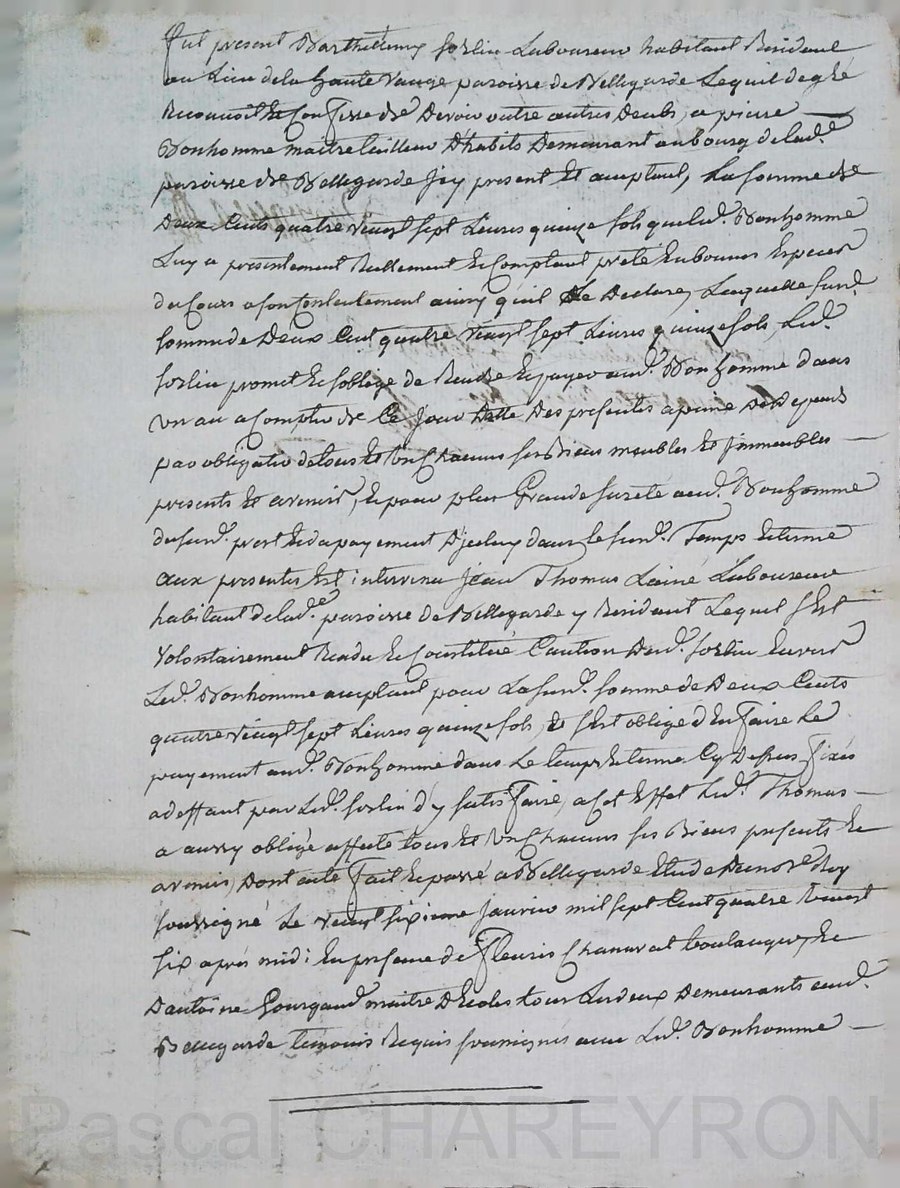 fut present Barthélemy forlin Laboureur habitant Residant
au Lieu de la haute vauze paroisse de Bellegarde Lequel de gré
Reconnoit Et Confesse dre Devoir outre autres Deubs, a pierre
Bonhomme maitre tailleur D'habits Demeurant au bourg de lade
paroisse dre Bellegarde jcy present Et acceptant, La somme de
Deux Cents quatre vingt sept Livres quinze sols que led. Bonhomme
Luy a presentement Reellement Et Comptant preté En bonnes Especes
du Cours a son Contentement ainsy qu'il Le Declare, Laquelle surd.
somme de Deux Cent quatre vingt sept Livres quinze sols, Led.
forlin promet Et soblige de Rendre Et payer aud. Bonhomme dans
un an a Compter de Ce jour datte Des presentes a peine De Depens
par obligation de tous Et un Chacuns ses Biens meubles Et jmmeubles
presents Et avenir, Et pour plus Grande sureté aud. Bonhomme
du surd. prest Et du payement D'jceluy dans le surd. Temps Et terme
aux presentes Est intervenu jean Thomas Lainé Laboureur
habitant de lade paroisse de Bellegarde y Residant Lequel s'Est
Volontairement Rendu Et Constitué Caution Dud. forlin Envers
Led. Bonhomme acceptant pour La surd. somme de Deux Cents
quatre vingt sept Livres quinze sols, Et s'Est obligé d'En faire Le
payement aud. Bonhomme dans Le temps Et terme Cy Dessus fixés
a deffaut par Led. forlin d'y satisfaire, a Cet Effet Led. Thomas
a aussy obligé affecté tous Et un Chacuns ses Biens presents Et
avenir, Dont acte fait Et passé a Bellegarde Etude Du nore Roy
soussigné Le vingt sixieme janvier mil sept Cent quatre vingt
six aprés midi En presence de fleuris Chanavat boulanger, Et
D'antoine Gourgaud maitre D'Ecoles tous Les deux Demeurants aud.
Bellegarde temoins Requis soussignés avec Led. Bonhomme
Pascal CHAREYRON